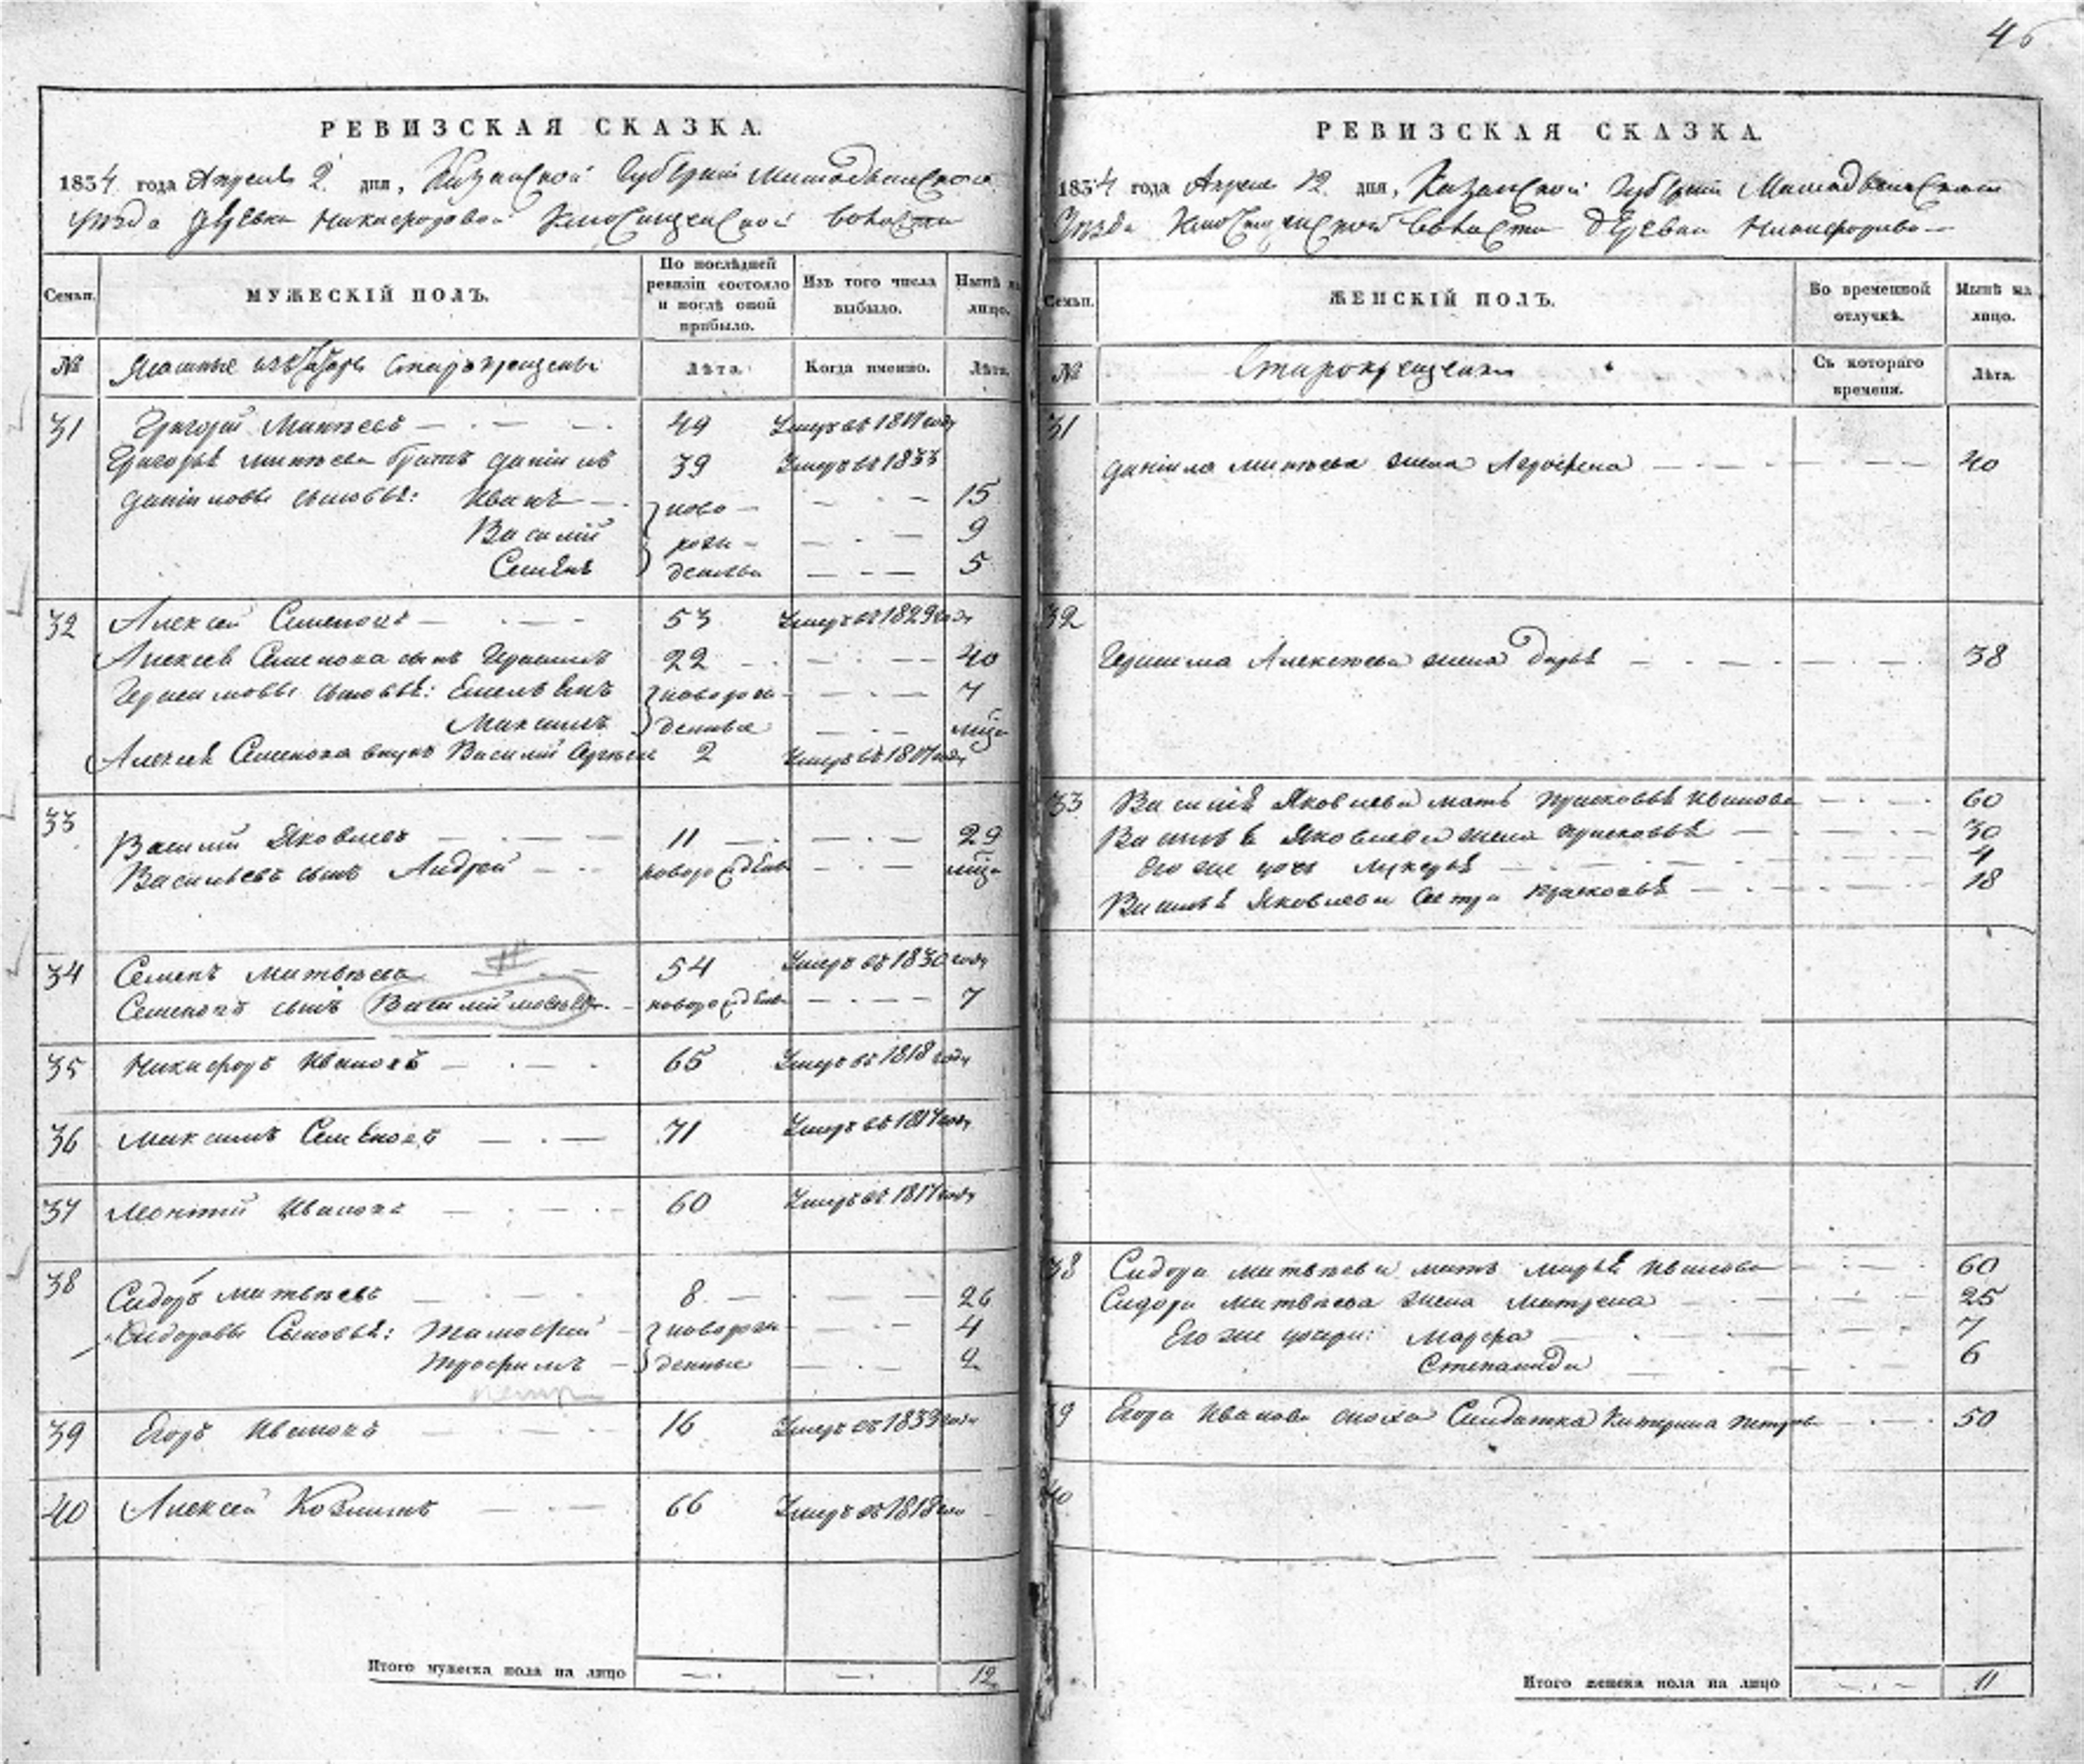 46
РЕВИЗСКАЯ СКАЗКА.
1834 года Апреля 2 дня, Казанской Губернии Мамадышского
уезда деревни Никифоровой Ключищенской волости
Семьи.
МУЖЕСКІЙ ПОЛЪ.
По послѣдней ревизіи состояло и послѣ оной прибыло.
Изъ того числа выбыло.
Нынѣ на лицо.
№
Ясашные изъ татаръ старокрещены
Лѣта.
Когда именно.
Лѣта.
31 Григорій Минѣевъ 49 Умеръ въ году
Григорья Минѣева братъ Данiилъ 39 Умеръ въ 1833
Данiиловы сыновья: Иванъ ново 15
Василій рож 9
Семенъ денные 5
32 Алексей Семеновъ 53 Умеръ въ 1829 году
Алексея Семенова сынъ Герасимъ 22 40
Герасимовы сыновья: Емельянъ новорож 7
Максимъ денные
Алексея Семенова внукъ Василій 2 Умеръ въ году
33 Василій Яковлевъ 11 29
Васильевъ сынъ Андрей новорожден
34 Семенъ Матвѣевъ 54 Умеръ въ 1830 году
Семеновъ сынъ Василій новорожден 7
35 Никифоръ Ивановъ 65 Умеръ въ 1818 году
36 Максимъ Семеновъ 71 Умеръ въ 1817 году
37 Леонтій Ивановъ 60 Умеръ въ 1817 году
38 Сидоръ Матвѣевъ 8 26
Сидоровы Сыновья: Тимофей новорож 4
Трофимъ денные 2
39 Егоръ Ивановъ 16 Умеръ въ 1833 году
40 Алексей Козминъ 66 Умеръ въ 1818 году
Итого мужеска пола на лицо 12
РЕВИЗСКАЯ СКАЗКА.
1834 года Апреля 12 дня, Казанской Губерніи Мамадышского
Уезда Ключищенской волости деревни Никифоровой
Семьи.
ЖЕНСКІЙ ПОЛЪ.
Во временной отлучкѣ.
Нынѣ на лицо.
№
Старокрещены
Съ котораго времени.
Лѣта.
31
Даніила Минѣева жена Агрофена 40
32
Герасима Алексѣева жена Дарья 38
33 Василья Яковлева мать Прасковья Иванова 60
Василья Яковлева жена Прасковья 30
Его же дочь Лукерья 4
Василья Яковлева сестра Прасковья 18
38 Сидора Матвѣева мать Марья Иванова 60
Сидора Матвѣева жена Матрена 25
Его же дочери: Марфа 7
Степанида 6
39 Егора Иванова сноха Солдатка Катерина Петрова 50
40
Итого женска пола на лицо 11